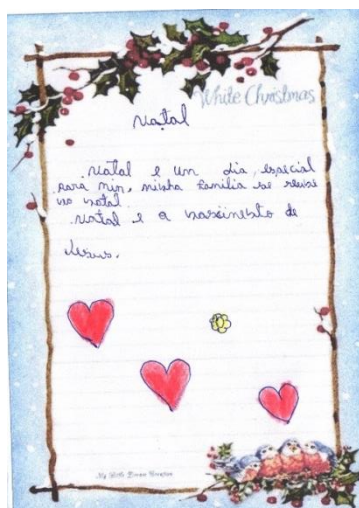 White Christmas
Natal
Natal e um dia, especial
para min, minha familia se reuni
no natal.
Natal e o nascimento de
Jesus.